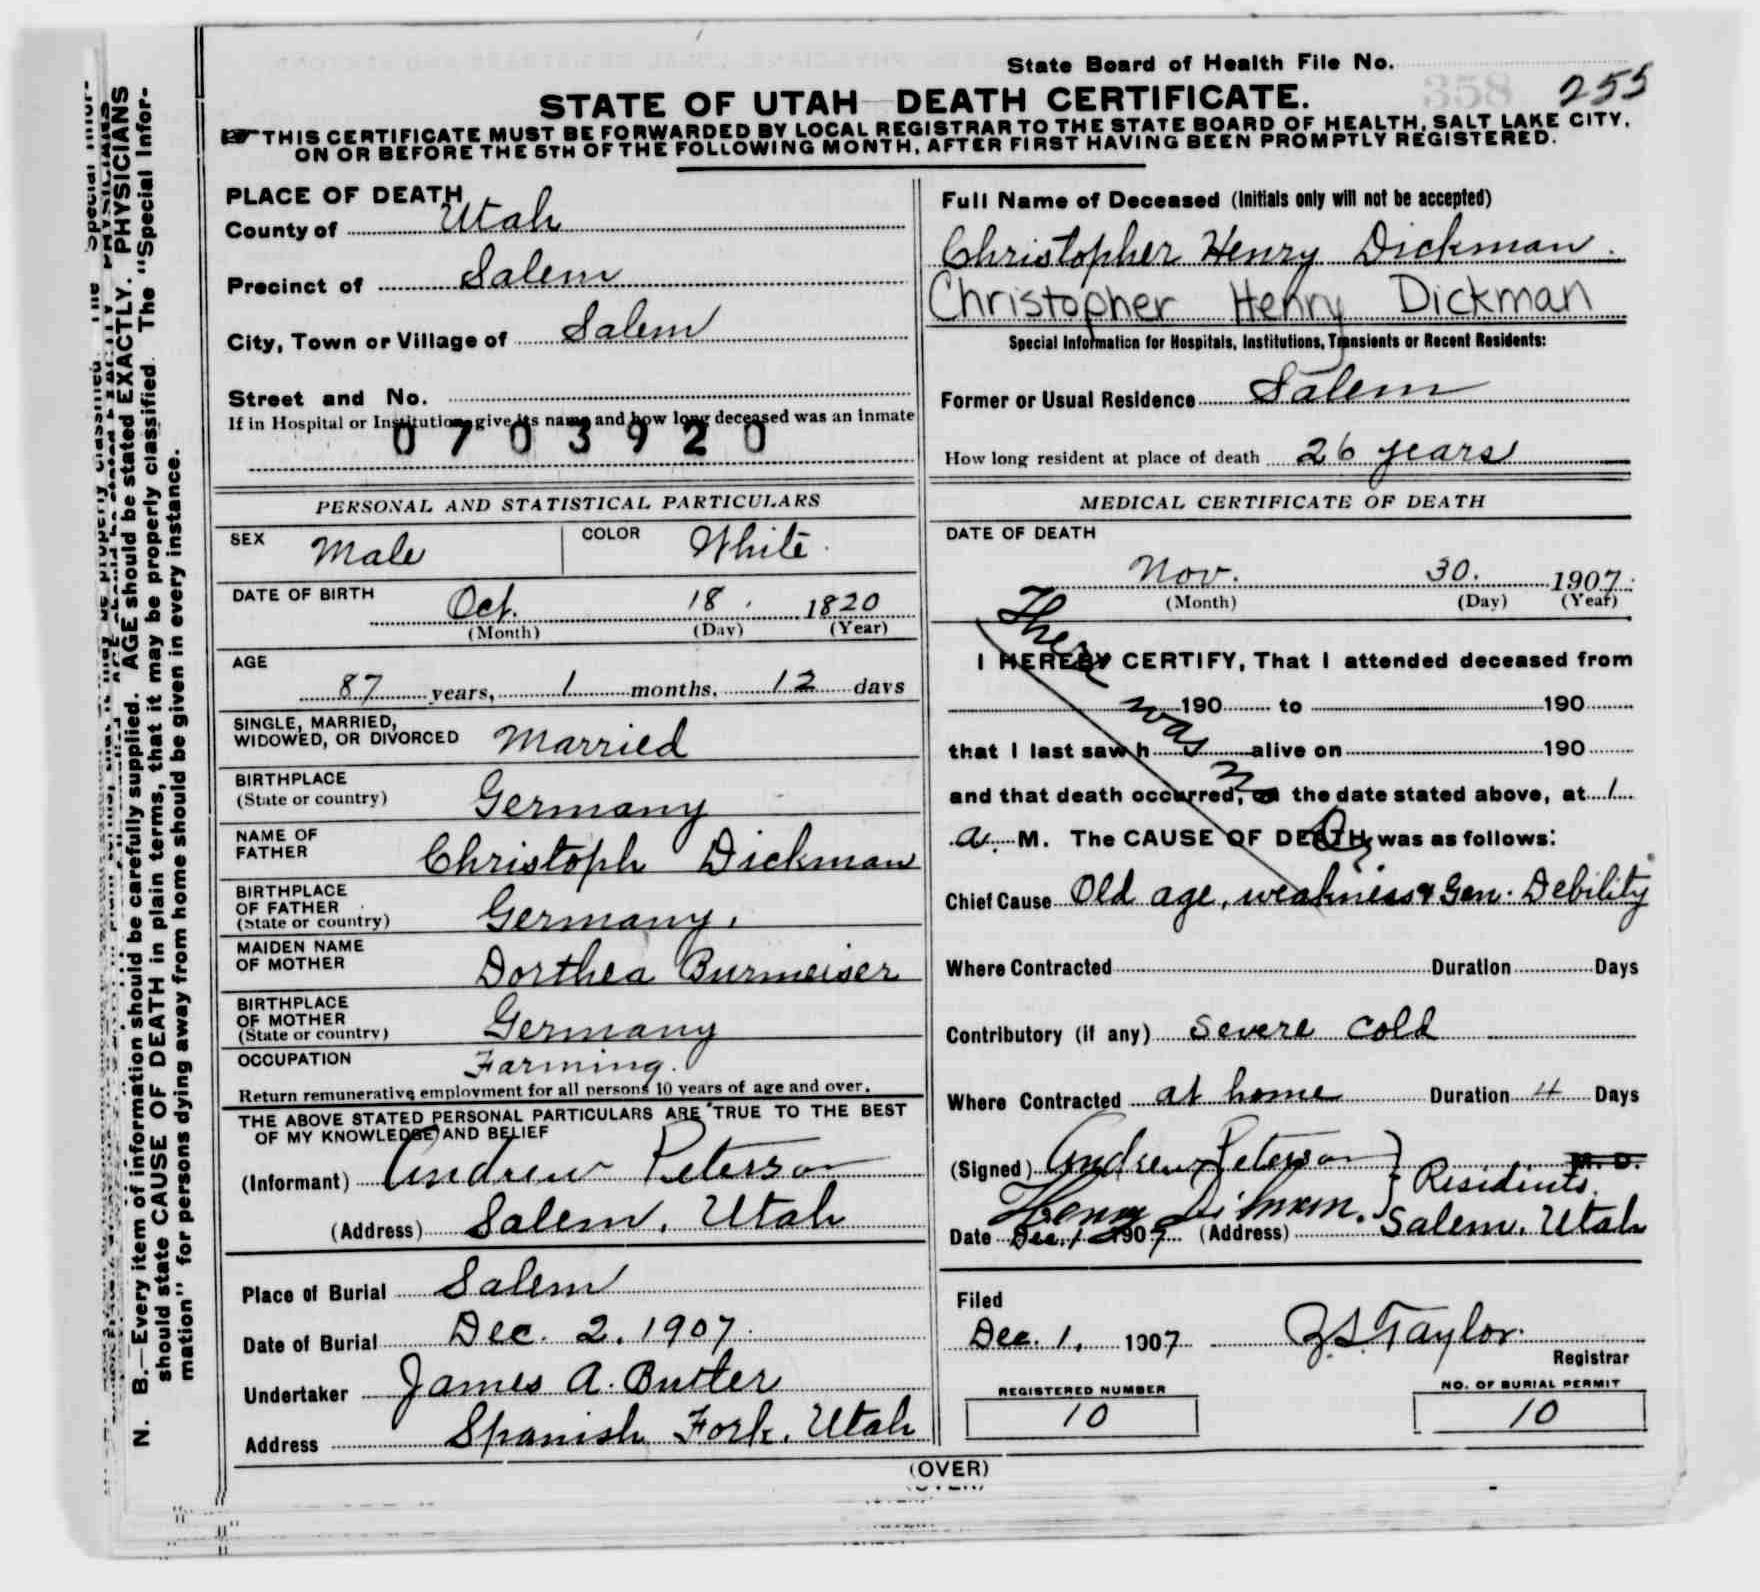 State Board of Health File No. 358 255
STATE OF UTAH—DEATH CERTIFICATE.
THIS CERTIFICATE MUST BE FORWARDED BY LOCAL REGISTRAR TO THE STATE BOARD OF HEALTH, SALT LAKE CITY,
ON OR BEFORE THE 5TH OF THE FOLLOWING MONTH, AFTER FIRST HAVING BEEN PROMPTLY REGISTERED.
PLACE OF DEATH
County of Utah
Precinct of Salem
City, Town or Village of Salem
Street and No.
If in Hospital or Institution, give its name and how long deceased was an inmate
0703920
PERSONAL AND STATISTICAL PARTICULARS
SEX Male COLOR White
DATE OF BIRTH
Oct. 18, 1820
(Month) (Day) (Year)
AGE
87 years, 1 months, 12 days
SINGLE, MARRIED,
WIDOWED, OR DIVORCED Married
BIRTHPLACE
(State or country) Germany
NAME OF
FATHER Christoph Dickman
BIRTHPLACE
OF FATHER
(State or country) Germany.
MAIDEN NAME
OF MOTHER Dorthea Burmeiser
BIRTHPLACE
OF MOTHER
(State or country) Germany
OCCUPATION Farming.
Return remunerative employment for all persons 10 years of age and over.
THE ABOVE STATED PERSONAL PARTICULARS ARE TRUE TO THE BEST
OF MY KNOWLEDGE AND BELIEF
(Informant) Andrew Peterson
(Address) Salem, Utah
Place of Burial Salem
Date of Burial Dec. 2, 1907
Undertaker James A. Butler
Address Spanish Fork, Utah
Full Name of Deceased (Initials only will not be accepted)
Christopher Henry Dickman.
Christopher Henry Dickman
Special Information for Hospitals, Institutions, Transients or Recent Residents:
Former or Usual Residence Salem
How long resident at place of death 26 years
MEDICAL CERTIFICATE OF DEATH
DATE OF DEATH
Nov. 30. 1907.
(Month) (Day) (Year)
There was no Dr
I HEREBY CERTIFY, That I attended deceased from
190 to 190
that I last saw h alive on 190
and that death occurred, on the date stated above, at 1
a. M. The CAUSE OF DEATH was as follows:
Chief Cause Old age, weakness & Gen. Debility
Where Contracted Duration Days
Contributory (if any) Severe cold
Where Contracted at home Duration 4 Days
(Signed) Andrew Peterson M. D.
Henry Residents.
Date Dec. 1 1907 (Address) Salem, Utah
Filed
Dec. 1, 1907 Z.S. Taylor.
Registrar
REGISTERED NUMBER
10
NO. OF BURIAL PERMIT
10
(OVER)
N. B.—Every item of information should be carefully supplied. AGE should be stated EXACTLY. PHYSICIANS
should state CAUSE OF DEATH in plain terms, that it may be properly classified. The "Special Infor-
mation" for persons dying away from home should be given in every instance.